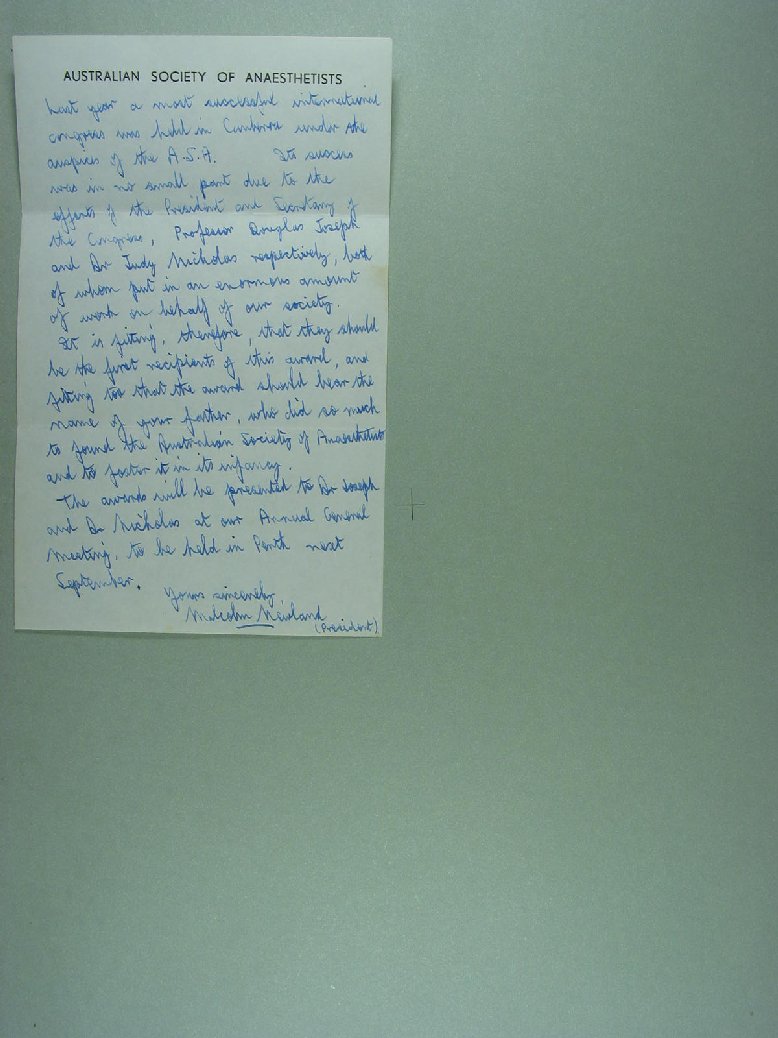 AUSTRALIAN SOCIETY OF ANAESTHETISTS
Last year a most successful international
congress was held in Canberra under the
auspices of the A.S.A. Its success
was in no small part due to the
efforts of the President and Secretary of
the Congress, Professor Douglas Joseph
and Dr Judy Nicholas respectively, both
of whom put in an enormous amount
of work on behalf of our society.
It is fitting, therefore, that they should
be the first recipients of this award, and
fitting too that the award should bear the
name of your father, who did so much
to found the Australian Society of Anaesthetists
and to foster it in its infancy.
The awards will be presented to Dr Joseph
and Dr Nicholas at our Annual General
Meeting, to be held in Perth next
September.
Yours sincerely,
Malcolm Newland
(President)